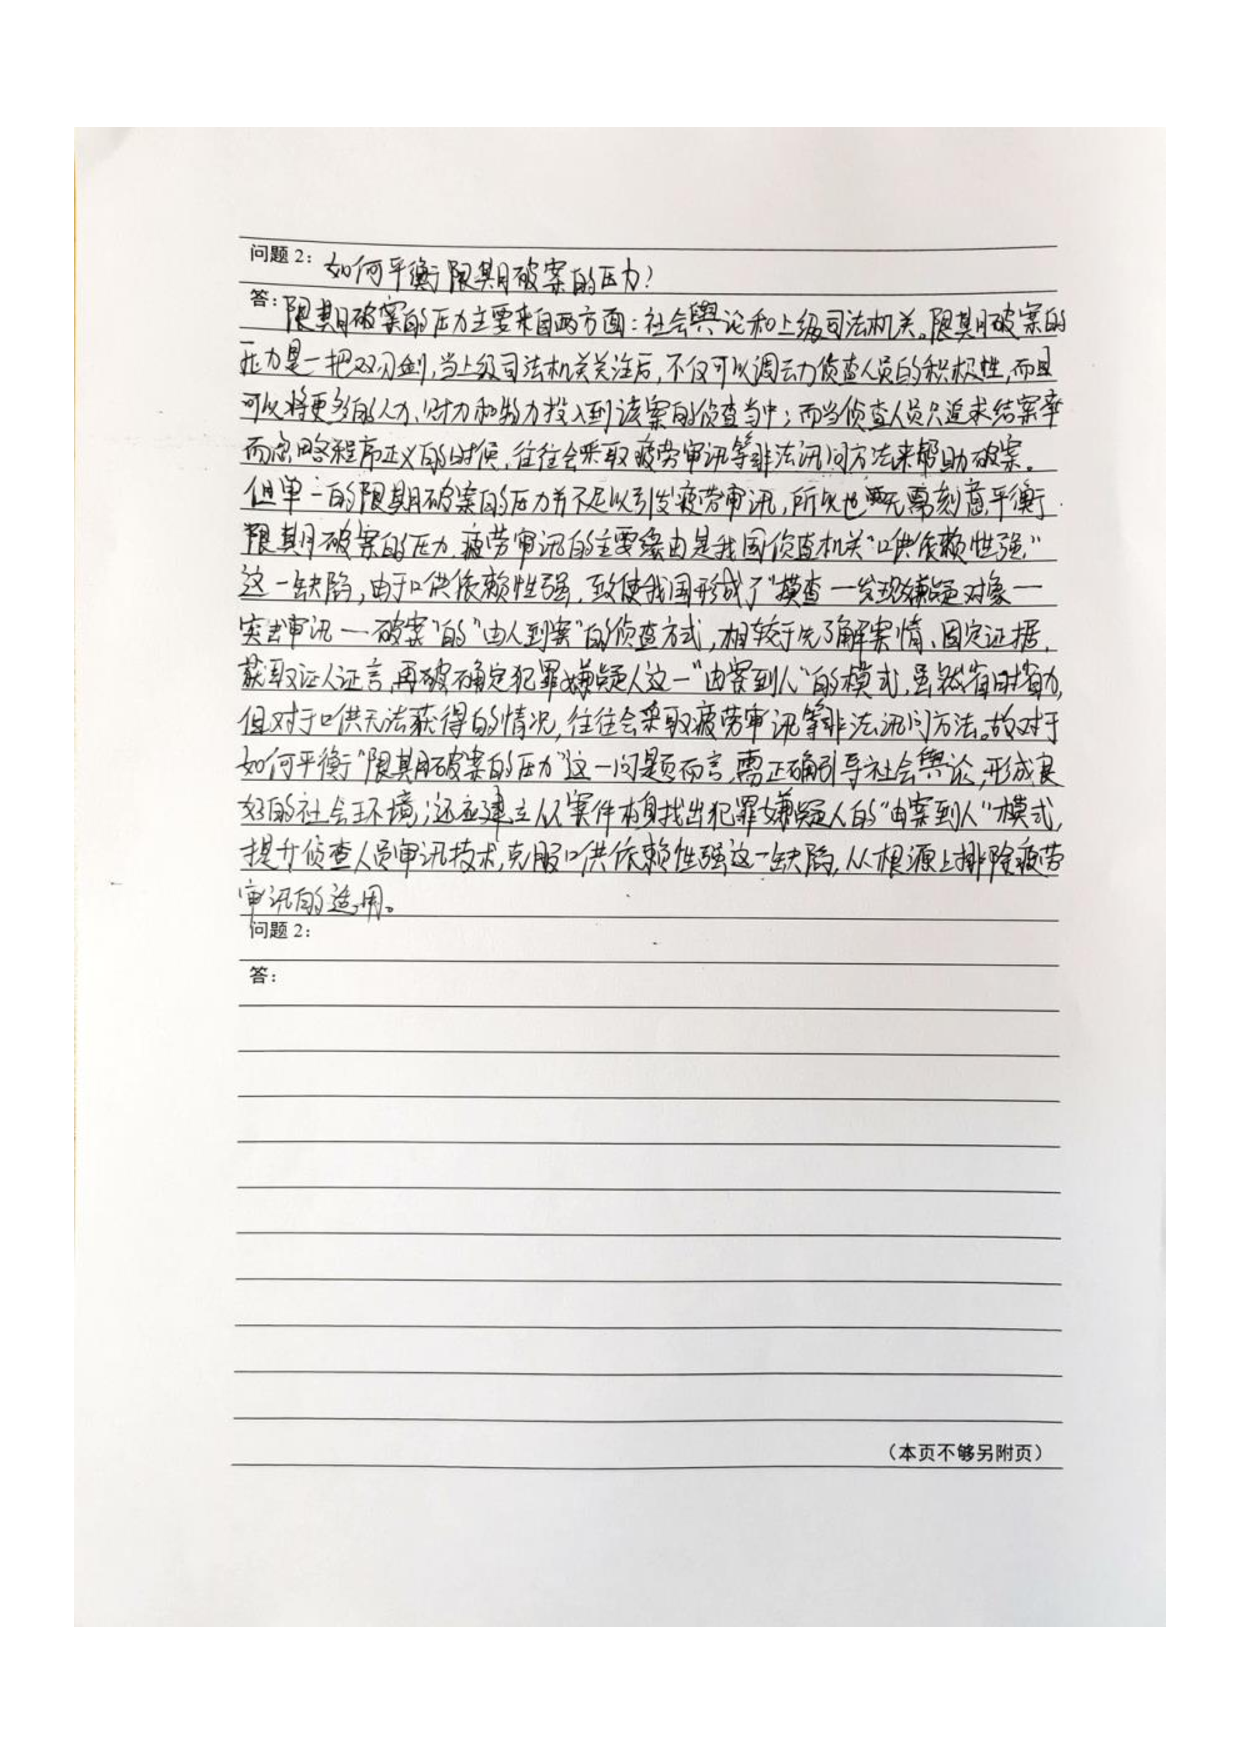 问题 2： 如何平衡限期破案的压力？
答：限期破案的压力主要来自两方面：社会舆论和上级司法机关。限期破案的
压力是一把双刃剑，当上级司法机关关注后，不仅可以调动侦查人员的积极性，而且
可以将更多的人力、财力和物力投入到该案的侦查当中；而当侦查人员只追求结案率
而忽略程序正义的时候，往往会采取疲劳审讯等非法讯问方法来帮助破案。
但单一的限期破案的压力并不足以引发疲劳审讯，所以也无需刻意平衡
限期破案的压力，疲劳审讯的主要缘由是我国侦查机关“口供依赖性强”
这一缺陷，由于口供依赖性强，致使我国形成了“摸查—发现嫌疑对象—
突击审讯—破案”的“由人到案”的侦查方式，相较于先了解案情、固定证据，
获取证人证言，再确定犯罪嫌疑人这一“由案到人”的模式，虽然省时省力，
但对于口供无法获得的情况，往往会采取疲劳审讯等非法讯问方法。故对于
如何平衡“限期破案的压力”这一问题而言，需正确引导社会舆论，形成良
好的社会环境；还应建立从案件本身找出犯罪嫌疑人的“由案到人”模式，
提升侦查人员审讯技术，克服口供依赖性强这一缺陷，从根源上排除疲劳
审讯的适用。
问题 2：
答：
（本页不够另附页）